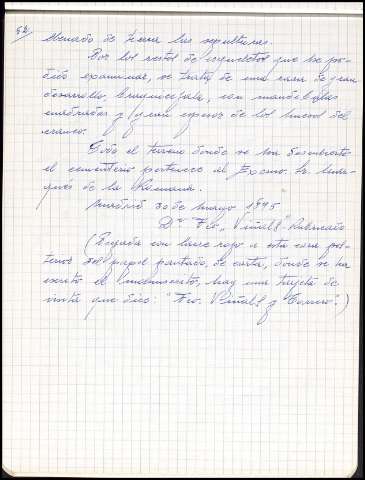 52/ llenado de tierra las sepulturas.
Por los restos de esqueletos que se pu-
dieron examinar, se trata de una raza de gran
desarrollo, braquicéfala, con mandíbulas
cuadradas y gran espesor de los huesos del
craneo.
Todo el terreno donde se ha descubierto
el cementerio pertenece al Excmo. Sr. Mar-
qués de la Romana.
Madrid 30 de mayo 1945
Fco. Viñals Rubricado
(Pegada con lacre rojo a esta cara pos-
terior del papel pautado, de carta, donde se ha
escrito el manuscrito, hay una tarjeta de
visita que dice: "Fco. Viñals y Torrero".)